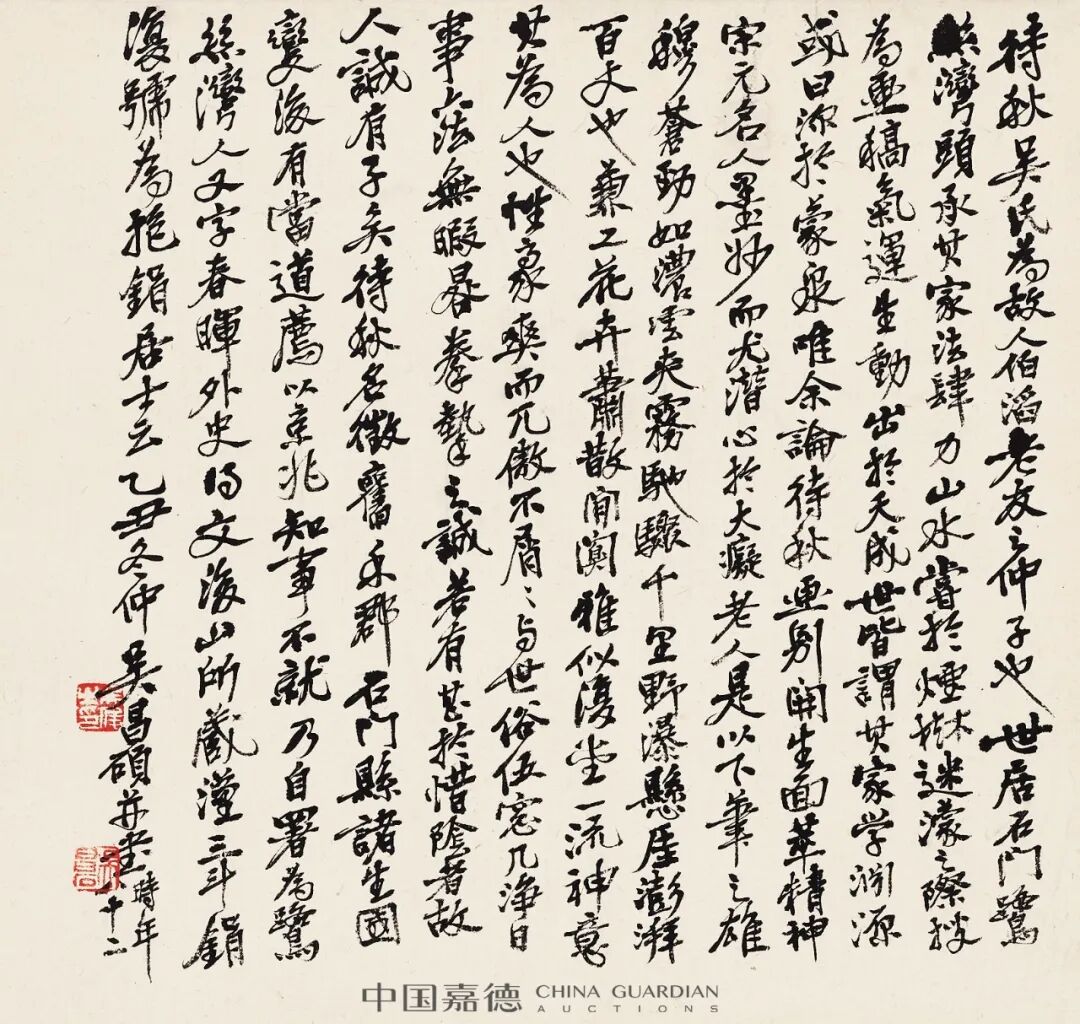 待秋吴氏為故人伯滔老友之仲子也世居石門鷺
鷥灣頭承其家法肆力山水嘗於煙林迷濛之際撥
為畫稿氣運生動出於天成世皆謂其家学淵源
或曰源於蒙泉唯余論待秋畫別開生面萃精神
宋元名人墨妙而尤潛心於大癡老人是以下筆之雄
穆蒼勁如濃雲夾霧馳驟千里野瀑懸崖澎湃
百丈也兼工花卉蕭散閒澹雅似復堂一流神意
其為人也性豪爽而兀傲不屑〻与世俗伍窓几淨日
事六法無暇晷拳拳之誠若有甚於惜陰者故
人誠有子矣待秋名徵舊禾郡石門縣諸生國
變後有當道薦以京兆知事不就乃自署為鷺
鷥灣人又字春暉外史得文後山所藏漢三斗鋗
復號為抱鋗居士云乙丑冬仲吴昌碩并書時年
八十二
中国嘉德 CHINA GUARDIAN
AUCTIONS